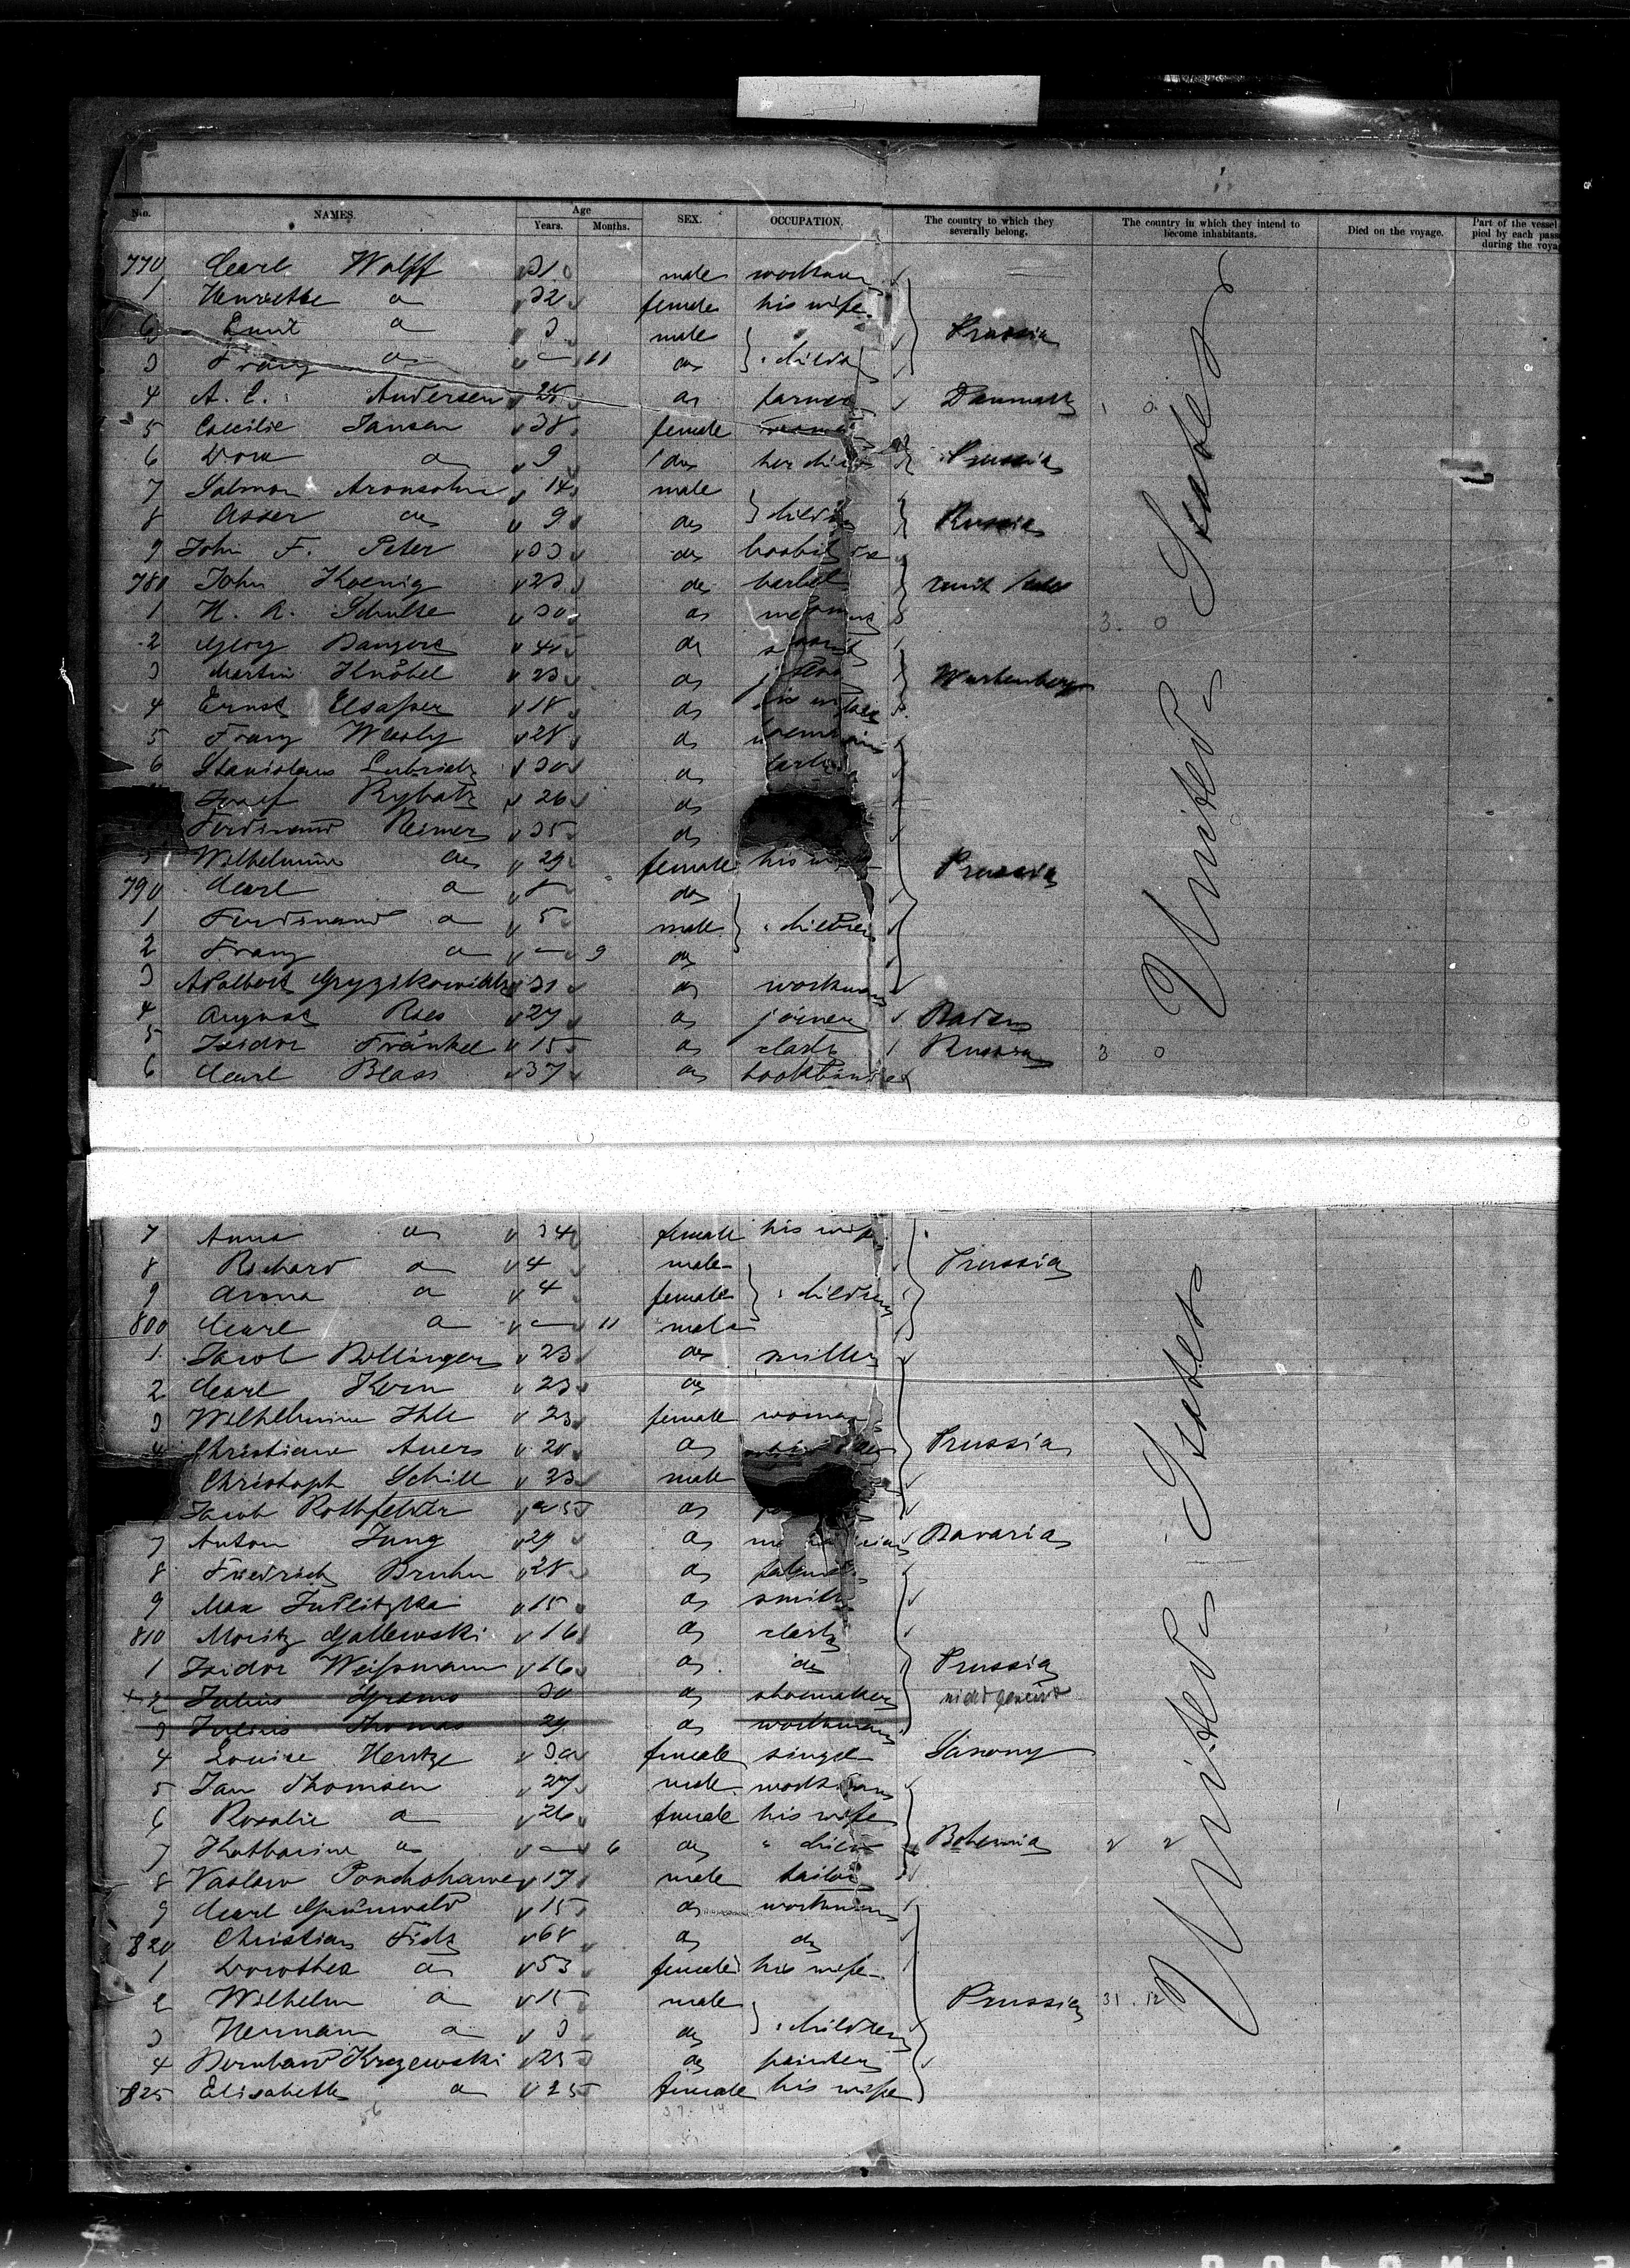 No. NAMES. Age Years. Months. SEX. OCCUPATION. The country to which they severally belong. The country in which they intend to become inhabitants. Died on the voyage. Part of the vessel pied by each pass during the voya
770 Carl Wolff 31 male workman
1 Henriette a 32 female his wife
Emil a 3 male Prussia
3 Franz a — 11 do childr
4 A. E. Andersen 28 do farmer Denmark 1 0
5 Caecilie Jansen 38 female woman
6 Dora a 9 do her child Prussia
7 Salmon Aronsohn 14 male
8 Asser do 9 do childr Russia
9 John F. Peter 33 do
780 John Koenig 23 do unit States
1 H. A. Schulte 30 do 3. 0
2 Georg Bangert 45 do
3 Martin Knöbel 23 do Wurtemberg
4 Ernst Elsasser 18 do
5 Franz Wessly 28 do
6 Stanislaus Lubrich 30 do
Josef Rybatz 26 do
Ferdinand Reimer 35 do
Wilhelmine do 29 female his Prussia
790 Carl a 8 do
1 Ferdinand a 5 male children
2 Franz a — 9 do
3 Adalbert 31 do workman
4 August Rees 27 do joiner Baden
5 Isidor Fränkel 15 do clark Russia 3 0
6 Carl Blass 37 do bookbinder
7 Anna do 34 female his wife
8 Richard a 4 male Prussia
9 Anna a 4 female children
800 Carl a — 11 male
1 Jacob Bollinger 23 do miller
2 Carl Kern 23 do
3 Wilhelmine Ihle 23 female woman
4 Christiane Auers 20 do Prussia
Christoph Schill 23 male
Jacob Rothfelder 25 do
7 Anton Jung 29 do Bavaria
8 Friedrich Bruhn 28 do
9 Max Judlitzka 15 do smith
810 Moritz Gallewski 16 do clark
1 Isidor Weissmann 16 do do Prussia
2 Julius 30 do shoemaker
3 Julius Thomas 29 do workman
4 Louise Hentze 30 female single Saxony
5 Jan Thomsen 27 male workman
6 Rosalie a 26 female his wife
7 Katharine a — 6 do " child Bohemia 2 2
8 Vaslav 17 male tailor
9 Carl Grünwald 15 do workman
820 Christian Fick 68 do do
1 Dorothea a 53 female his wife
2 Wilhelm a 15 male Prussia 31. 12
3 Herman a 3 do children
4 Bernhard Krzewski 25 do painter
825 Elisabeth a 25 female his wife
56 37 14
United States
United States